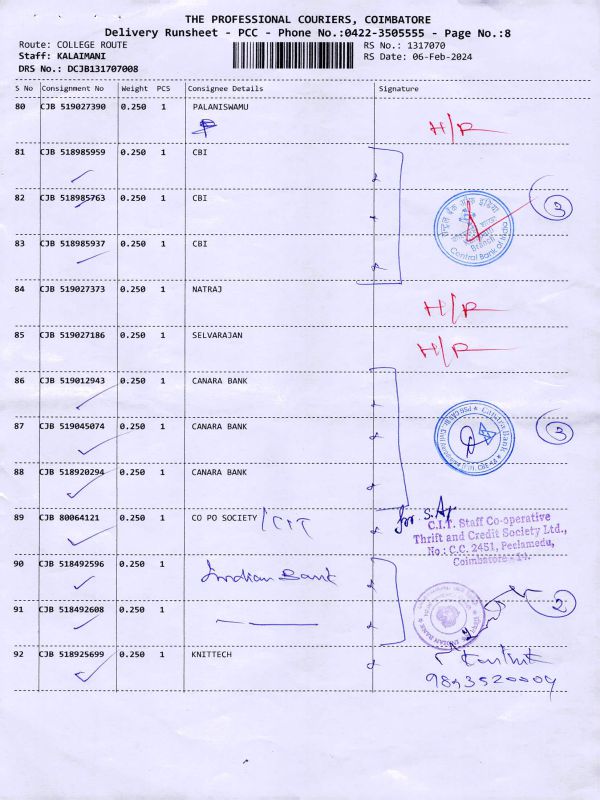 THE PROFESSIONAL COURIERS, COIMBATORE
Delivery Runsheet - PCC - Phone No.:0422-3505555 - Page No.:8
Route: COLLEGE ROUTE RS No.: 1317070
Staff: KALAIMANI RS Date: 06-Feb-2024
DRS No.: DCJB131707008
S No Consignment No Weight PCS Consignee Details Signature
80 CJB 519027390 0.250 1 PALANISWAMU
H/R
81 CJB 518985959 0.250 1 CBI
82 CJB 518985763 0.250 1 CBI
3
Central Bank of India
83 CJB 518985937 0.250 1 CBI
84 CJB 519027373 0.250 1 NATRAJ
H/R
85 CJB 519027186 0.250 1 SELVARAJAN
H/R
86 CJB 519012943 0.250 1 CANARA BANK
87 CJB 519045074 0.250 1 CANARA BANK
Canara Bank
3
88 CJB 518920294 0.250 1 CANARA BANK
89 CJB 80064121 0.250 1 CO PO SOCIETY / CIT
C.I.T. Staff Co-operative
Thrift and Credit Society Ltd.,
No: C.C. 2451, Peelamedu,
Coimbatore
90 CJB 518492596 0.250 1 Indian Bank
2
91 CJB 518492608 0.250 1
INDIAN BANK
92 CJB 518925699 0.250 1 KNITTECH